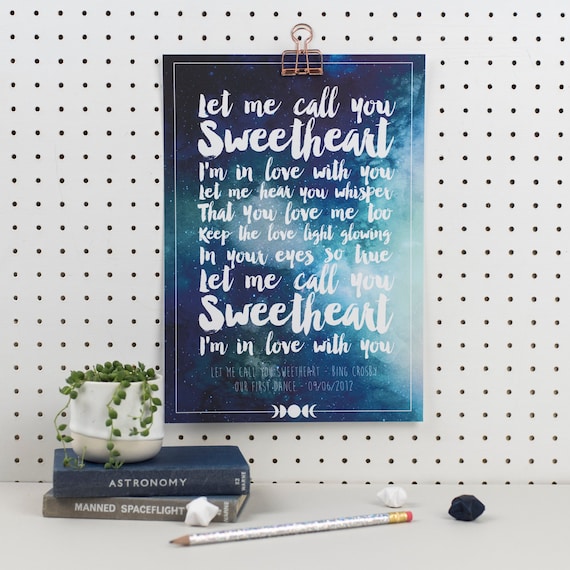 Let me call you
Sweetheart
I'm in love with you
Let me hear you whisper
That you love me too
Keep the love light glowing
In your eyes so true
Let me call you
Sweetheart
I'm in love with you
LET ME CALL YOU SWEETHEART - BING CROSBY
OUR FIRST DANCE - 09/06/2012
ASTRONOMY
MANNED SPACEFLIGHT